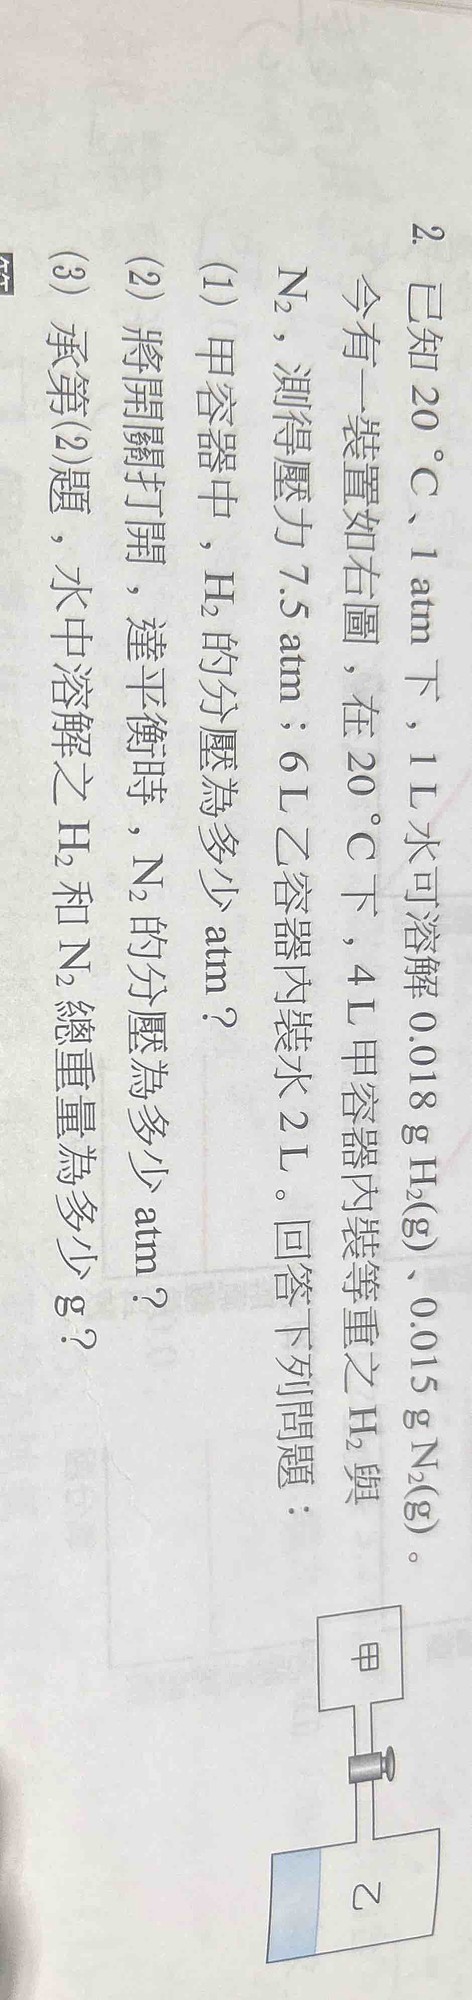 2. 已知 20 °C、1 atm 下，1 L 水可溶解 0.018 g H₂(g)、0.015 g N₂(g)。
今有一裝置如右圖，在 20 °C 下，4 L 甲容器內裝等重之 H₂ 與
N₂，測得壓力 7.5 atm；6 L 乙容器內裝水 2 L。回答下列問題：
(1) 甲容器中，H₂ 的分壓為多少 atm？
(2) 將開關打開，達平衡時，N₂ 的分壓為多少 atm？
(3) 承第(2)題，水中溶解之 H₂ 和 N₂ 總重量為多少 g？
甲
乙